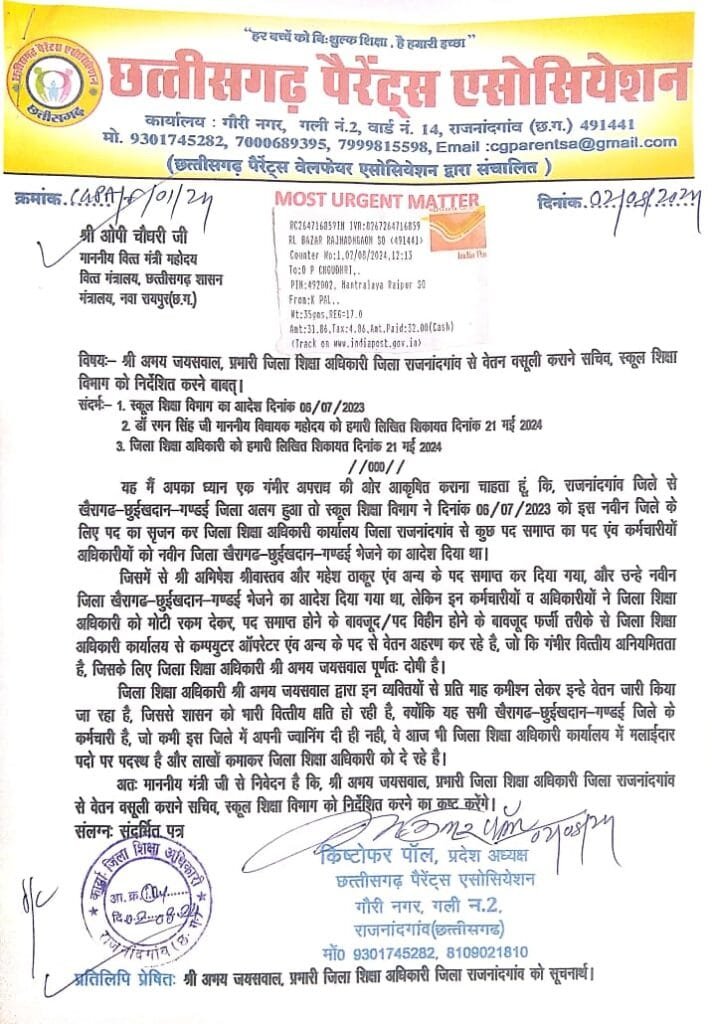 "हर बच्चें को निःशुल्क शिक्षा . है हमारी इच्छा"
छत्तीसगढ़ पैरेंट्स एसोसियेशन
कार्यालय : गौरी नगर, गली नं.2, वार्ड नं. 14, राजनांदगांव (छ.ग.) 491441
मो. 9301745282, 7000689395, 7999815598, Email :cgparentsa@gmail.com
(छत्तीसगढ़ पैरेंट्स वेलफेयर एसोसियेशन द्वारा संचालित )
छत्तीसगढ़ पैरेंट्स एसोसियेशन
छत्तीसगढ़
क्रमांक.
MOST URGENT MATTER
दिनांक. 02/08/2024
श्री ओपी चौधरी जी
माननीय वित्त मंत्री महोदय
वित्त मंत्रालय, छत्तीसगढ़ शासन
मंत्रालय, नवा रायपुर(छ.ग.)
RC264716859IN IVR:8267264716859
RL BAZAR RAJNANDGAON SO <491441>
Counter No:1,02/08/2024,12:13
To:O P CHOUDHRI,.
PIN:492002, Mantralaya Raipur SO
From:K PAL,.
Wt:35gms,REG=17.0
Amt:31.86,Tax:4.86,Amt.Paid:32.00(Cash)
(Track on www.indiapost.gov.in)
विषयः– श्री अभय जयसवाल, प्रभारी जिला शिक्षा अधिकारी जिला राजनांदगांव से वेतन वसूली कराने सचिव, स्कूल शिक्षा
विभाग को निर्देशित करने बाबत्।
संदर्भः– 1. स्कूल शिक्षा विभाग का आदेश दिनांक 06/07/2023
2. डॉ रमन सिंह जी माननीय विधायक महोदय को हमारी लिखित शिकायत दिनांक 21 मई 2024
3. जिला शिक्षा अधिकारी को हमारी लिखित शिकायत दिनांक 21 मई 2024
//000//
यह मैं अपका ध्यान एक गंभीर अपराध की ओर आकृषित कराना चाहता हूं, कि, राजनांदगांव जिले से
खैरागढ–छुईखदान–गण्डई जिला अलग हुआ तो स्कूल शिक्षा विभाग ने दिनांक 06/07/2023 को इस नवीन जिले के
लिए पद का सृजन कर जिला शिक्षा अधिकारी कार्यालय जिला राजनांदगांव से कुछ पद समाप्त का पद एंव कर्मचारीयों
अधिकारीयों को नवीन जिला खैरागढ–छुईखदान–गण्डई भेजने का आदेश दिया था।
जिसमें से श्री अमिषेश श्रीवास्तव और महेश ठाकूर एंव अन्य के पद समाप्त कर दिया गया, और उन्हे नवीन
जिला खैरागढ–छुईखदान–गण्डई भेजने का आदेश दिया गया था, लेकिन इन कर्मचारीयों व अधिकारीयों ने जिला शिक्षा
अधिकारी को मोटी रकम देकर, पद समाप्त होने के बावजूद/पद विहीन होने के बावजूद फर्जी तरीके से जिला शिक्षा
अधिकारी कार्यालय से कम्पयुटर ऑपरेटर एंव अन्य के पद से वेतन अहरण कर रहे है, जो कि गंभीर वित्तीय अनियमितता
है, जिसके लिए जिला शिक्षा अधिकारी श्री अभय जयसवाल पूर्णतः दोषी है।
जिला शिक्षा अधिकारी श्री अभय जयसवाल द्वारा इन व्यक्तियों से प्रति माह कमीश्न लेकर इन्हे वेतन जारी किया
जा रहा है, जिससे शासन को भारी वित्तीय क्षति हो रही है, क्योंकि यह सभी खैरागढ–छुईखदान–गण्डई जिले के
कर्मचारी है, जो कभी इस जिले में अपनी ज्वानिंग दी ही नही, वे आज भी जिला शिक्षा अधिकारी कार्यालय में मलाईदार
पदो पर पदस्थ है और लाखों कमाकर जिला शिक्षा अधिकारी को दे रहे है।
अतः माननीय मंत्री जी से निवेदन है कि, श्री अभय जयसवाल, प्रभारी जिला शिक्षा अधिकारी जिला राजनांदगांव
से वेतन वसूली कराने सचिव, स्कूल शिक्षा विभाग को निर्देशित करने का कष्ट करेंगे।
संलग्नः संदर्भित पत्र
02/08/24
क्रिष्टोफर पॉल, प्रदेश अध्यक्ष
छत्तीसगढ़ पैरेंट्स एसोसियेशन
गौरी नगर, गली न.2.
राजनांदगांव(छत्तीसगढ)
मों0 9301745282, 8109021810
कार्या. जिला शिक्षा अधिकारी
आ.क्र.
दि. 02.08.24
राजनांदगांव (छ. ग.)
प्रतिलिपि प्रेषितः श्री अभय जयसवाल, प्रभारी जिला शिक्षा अधिकारी जिला राजनांदगांव को सूचनार्थ।